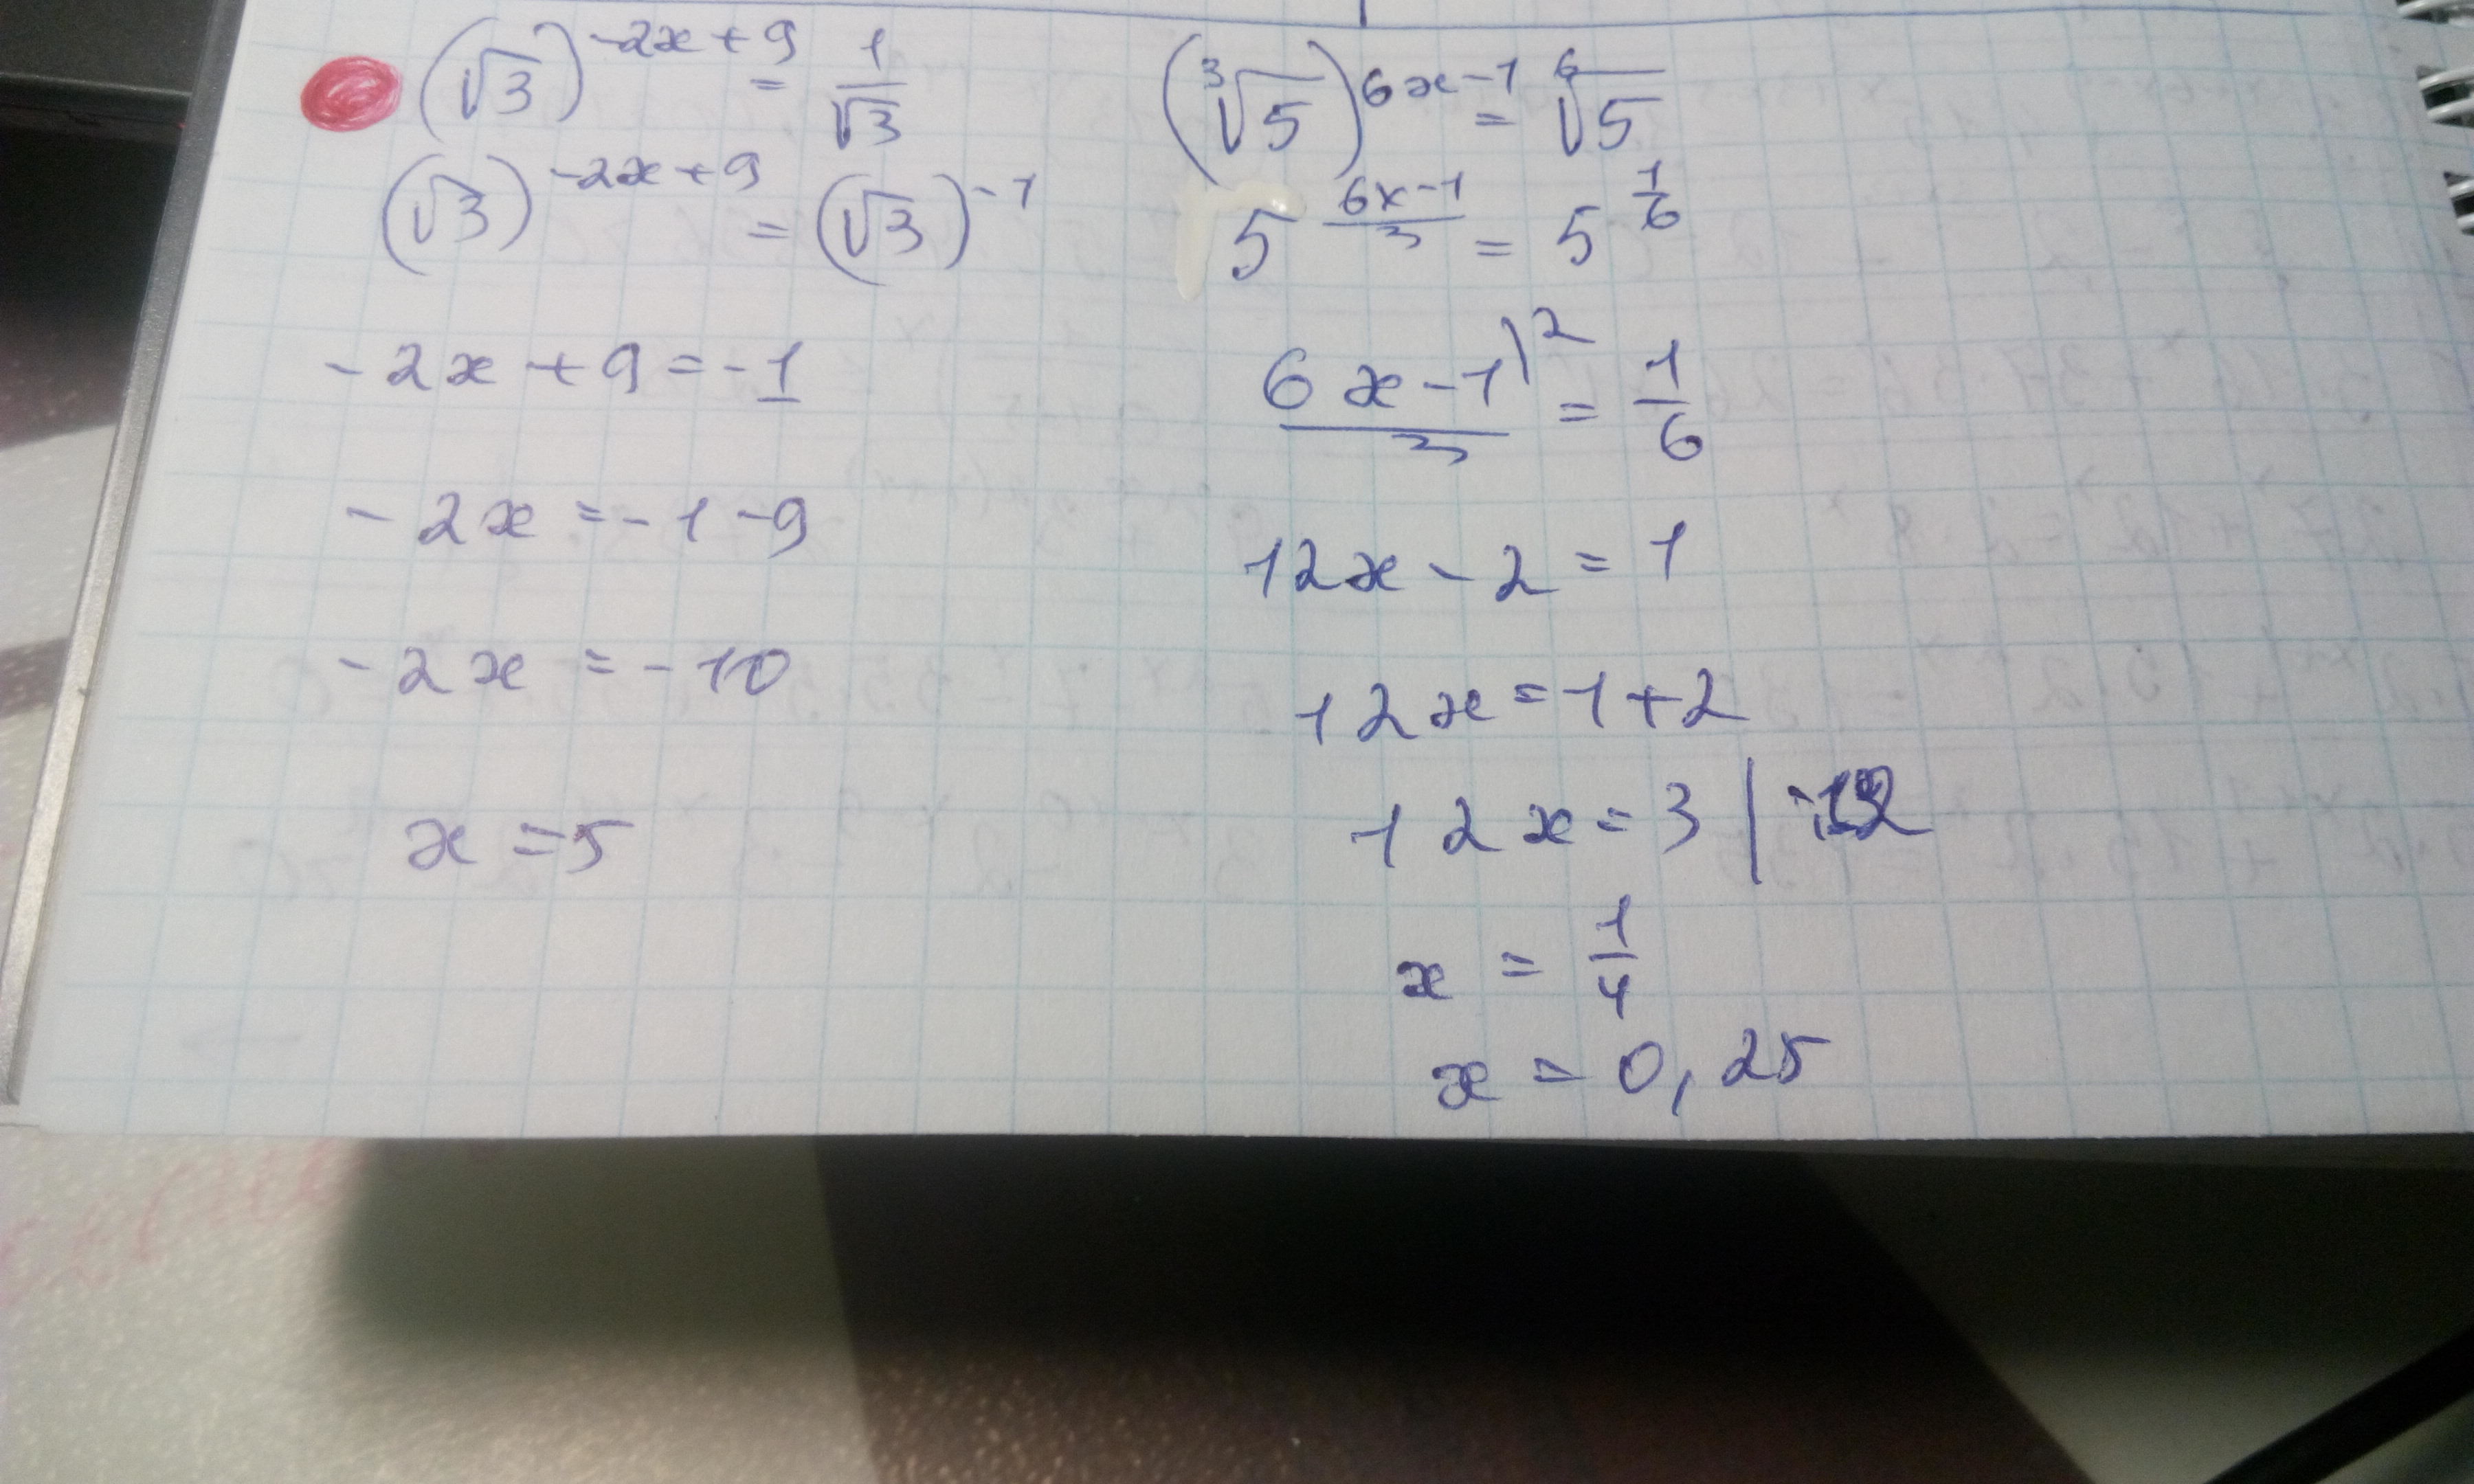 (√3)^(-2x+9) = 1/√3
(√3)^(-2x+9) = (√3)^(-1)
-2x+9=-1
-2x=-1-9
-2x=-10
x=5
(∛5)^(6x-1) = ⁶√5
5^((6x-1)/3) = 5^(1/6)
(6x-1)/3 |2 = 1/6
12x-2=1
12x=1+2
12x=3 | :12
x = 1/4
x = 0,25